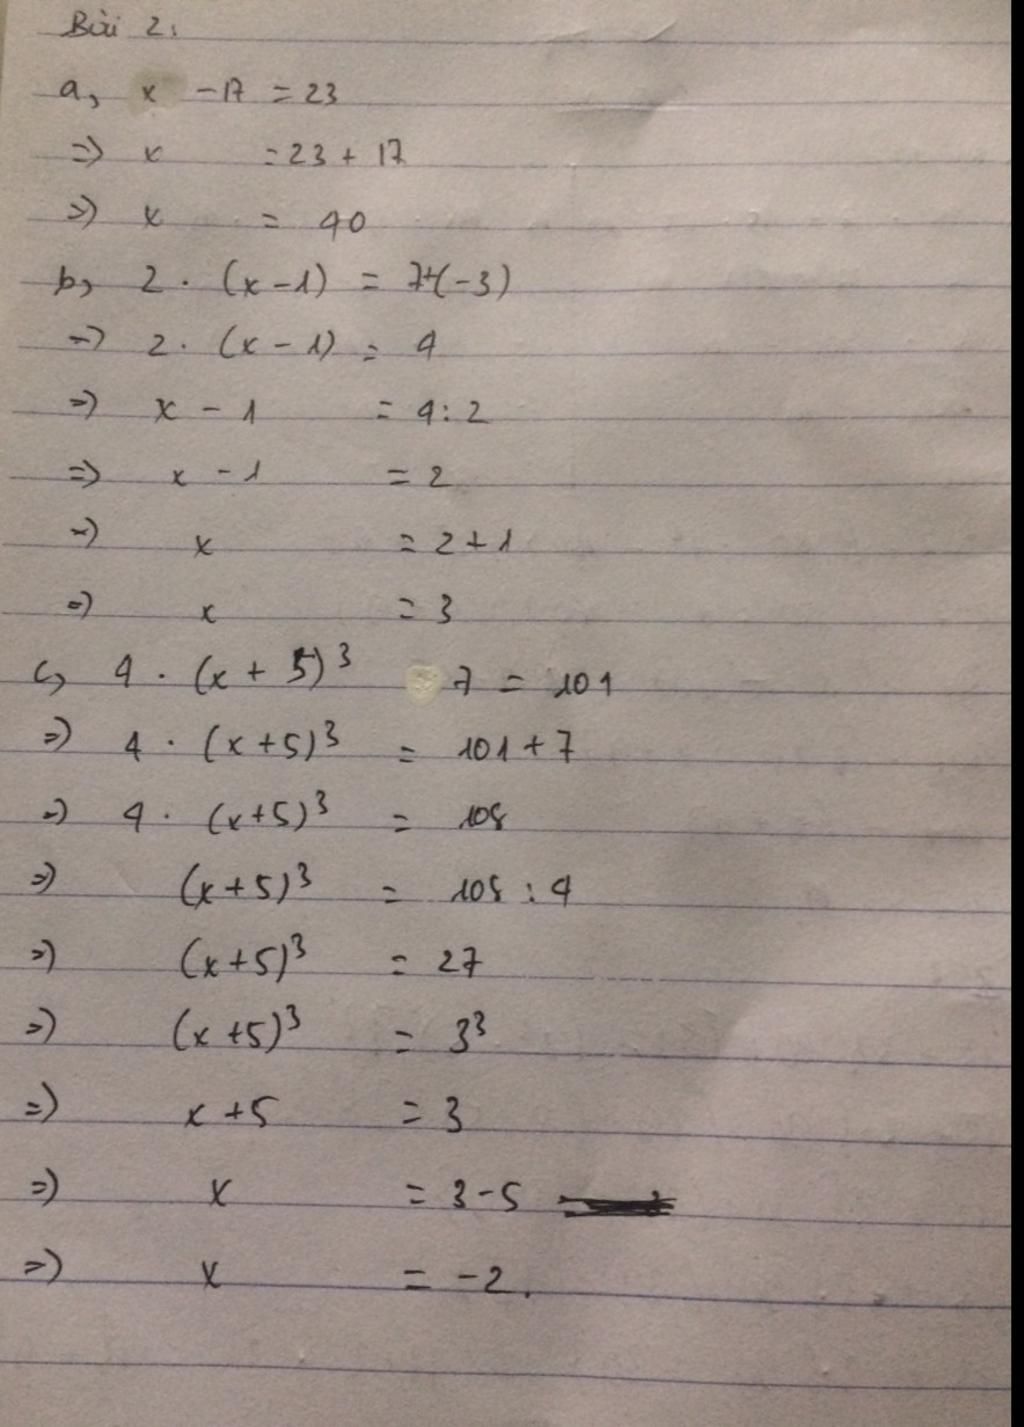 Bài 2:
a, x - 17 = 23
=> x = 23 + 17
=> x = 40
b, 2 . (x - 1) = 7+(-3)
=> 2 . (x - 1) = 4
=> x - 1 = 4 : 2
=> x - 1 = 2
=> x = 2 + 1
=> x = 3
c, 4 . (x + 5)³ 7 = 101
=> 4 . (x + 5)³ = 101 + 7
=> 4 . (x + 5)³ = 108
=> (x + 5)³ = 108 : 4
=> (x + 5)³ = 27
=> (x + 5)³ = 3³
=> x + 5 = 3
=> x = 3 - 5
=> x = -2.